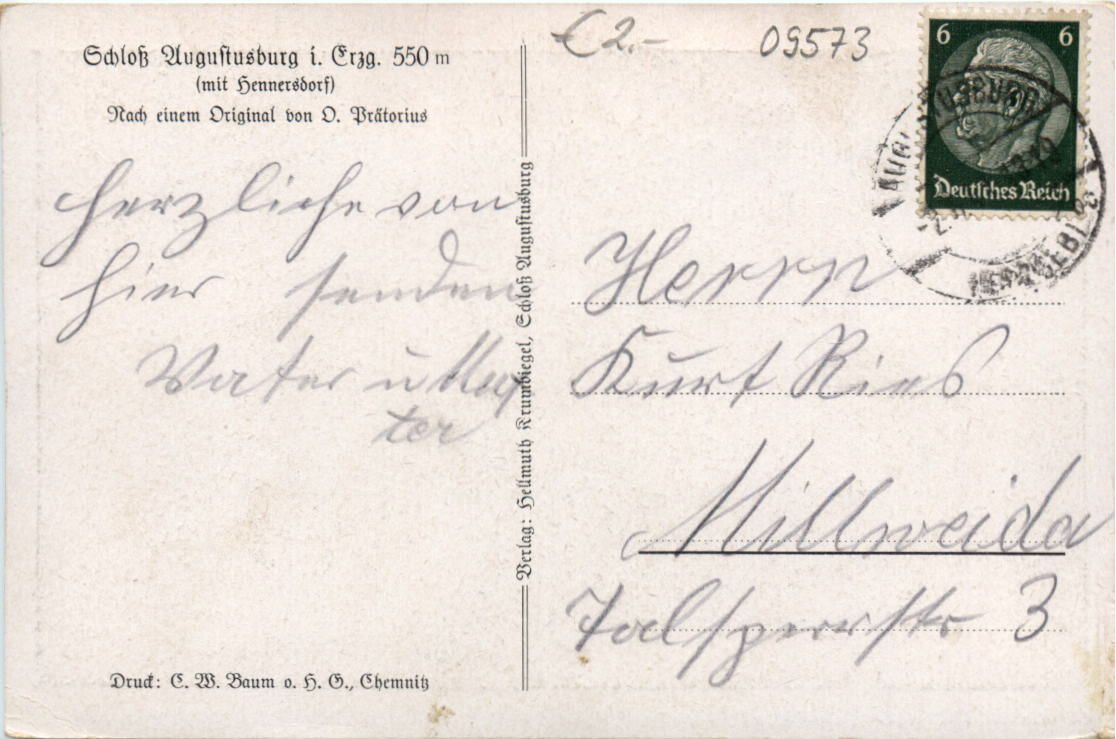 Schloß Augustusburg i. Erzg. 550 m
(mit Hennersdorf)
Nach einem Original von O. Prätorius
€ 2.-
09573
6 6
Deutsches Reich
Herzliche von
hier senden
Vater u Mut
ter
Verlag: Hellmuth Krumbiegel, Schloß Augustusburg
Herrn
Kurt Ries
Mittweida
Talsperrstr 3
Druck: C. W. Baum o. H. G., Chemnitz